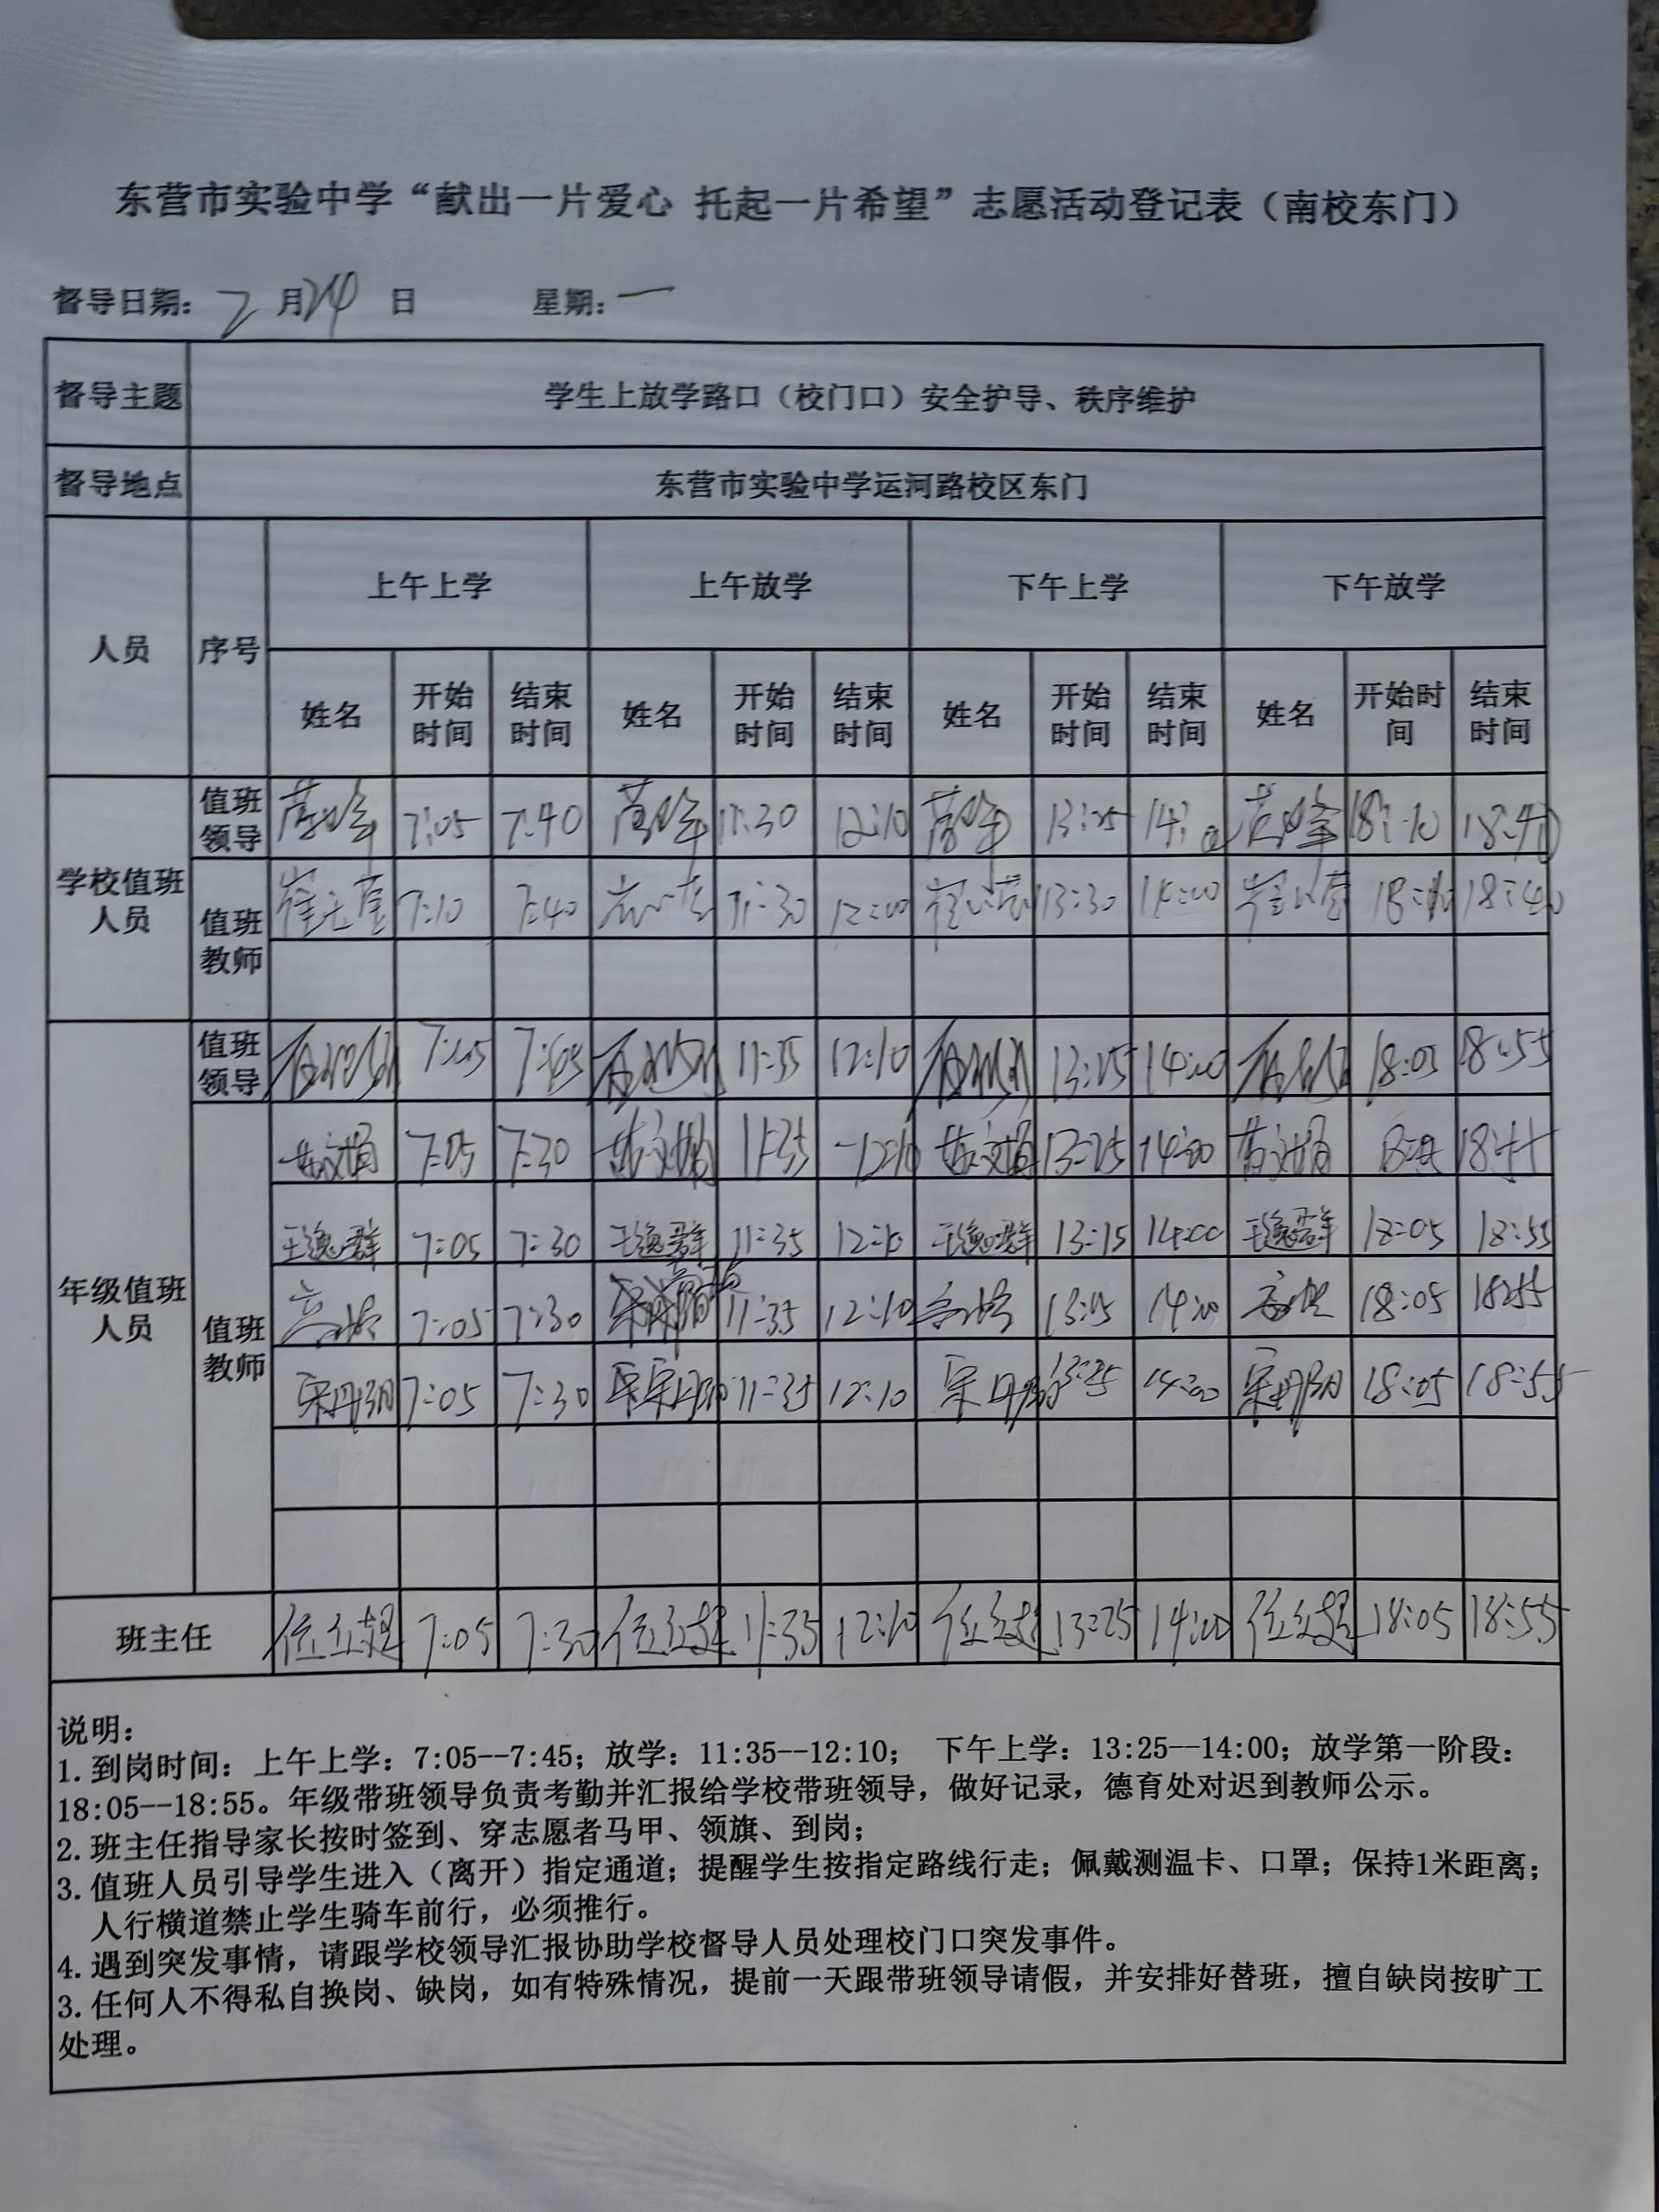 东营市实验中学“献出一片爱心 托起一片希望”志愿活动登记表（南校东门）
督导日期： 2 月 24 日 星期：一
督导主题 学生上放学路口（校门口）安全护导、秩序维护
督导地点 东营市实验中学运河路校区东门
人员 序号 上午上学 上午放学 下午上学 下午放学
姓名 开始时间 结束时间 姓名 开始时间 结束时间 姓名 开始时间 结束时间 姓名 开始时间 结束时间
学校值班人员
值班领导 7:05 7:40 11:30 12:10 18:10 18:40
值班教师 7:10 7:40 11:30 12:00 13:30 14:00 18:40
年级值班人员
值班领导 11:35 12:10 13:25 14:00 18:05 18:55
值班教师
7:05 7:30 11:35 12:10 13:25 14:00
王逸群 7:05 7:30 王逸群 11:35 12:10 王逸群 13:15 14:00 王逸群 18:05 18:55
7:05 7:30 11:35 12:10 14:00 18:05 18:55
宋丹朋 7:05 7:30 11:35 12:10 宋丹朋 14:00 宋丹朋 18:05 18:55
班主任 位立超 7:05 7:30 位立超 11:35 12:10 位立超 13:25 14:00 位立超 18:05 18:55
说明：
1.到岗时间：上午上学：7:05--7:45；放学：11:35--12:10； 下午上学：13:25--14:00；放学第一阶段：
18:05--18:55。年级带班领导负责考勤并汇报给学校带班领导，做好记录，德育处对迟到教师公示。
2.班主任指导家长按时签到、穿志愿者马甲、领旗、到岗；
3.值班人员引导学生进入（离开）指定通道；提醒学生按指定路线行走；佩戴测温卡、口罩；保持1米距离；
人行横道禁止学生骑车前行，必须推行。
4.遇到突发事情，请跟学校领导汇报协助学校督导人员处理校门口突发事件。
3.任何人不得私自换岗、缺岗，如有特殊情况，提前一天跟带班领导请假，并安排好替班，擅自缺岗按旷工
处理。